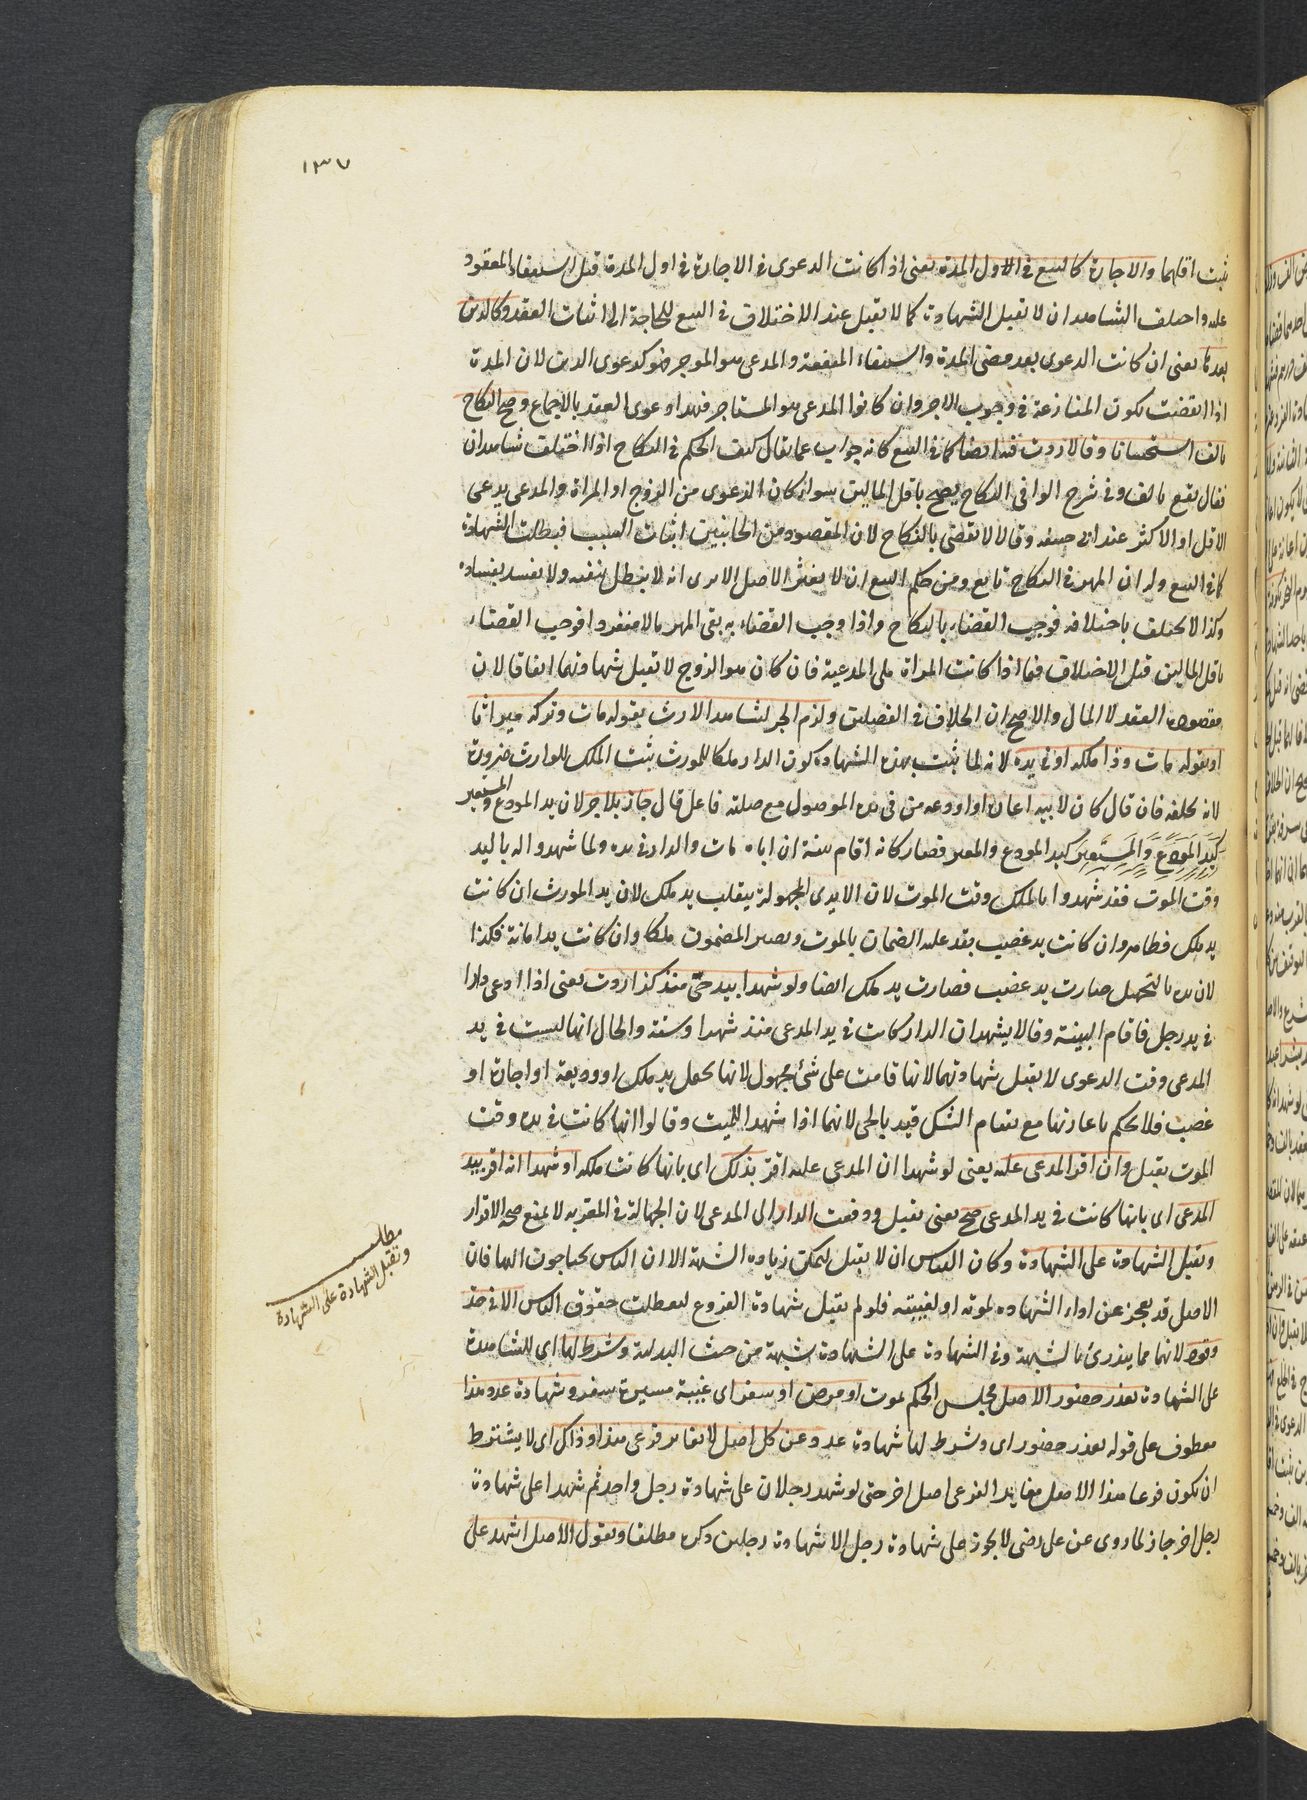 ١٣٧
ثبت اقلهما والاجارة كالبيع فى الاول المدة يعنى اذا كانت الدعوى فى الاجارة فى اول المدة قبل استيفاء المعقود
عليه واختلف الشاهدان لا تقبل الشهادة كما لا يقبل عند الاختلاف فى البيع للحاجة الى اثبات العقد وكالدين
بعدها يعنى ان كانت الدعوى بعد مضى المدة واستيفاء المنفعة والمدعى هو الموجر فهو كدعوى الدين لان المدة
اذا انقضت يكون المنازعة فى وجوب الاجر وان كانوا المدعى هو المستاجر فهذا دعوى العقد بالاجماع وصح النكاح
بالف استحسانا وقالا ردت فيه ايضا كما فى البيع كانه جواب عما يقال كيف الحكم فى النكاح اذا اختلف شاهدان
فقال يقع بالف وفى شرح الوافى النكاح يصح باقل المالين سواء كان الدعوى من الزوج او المراة والمدعى يدعى
الاقل او الاكثر عند ابى حنيفه وقالا لا يقضى بالنكاح لان المقصود من الجانبين اثبات السبب فبطلت الشهادة
كما فى البيع وله ان المهر فى النكاح تابع ومن حكم التبع ان لا يغير الاصل الا يرى انه لا يبطل بنفيه ولا يفسد بفساده
وكذا لا يختلف باختلافه فوجب القضاء بالنكاح واذا وجب القضاء به بقى المهر مالا منفردا فوجب القضاء
باقل المالين قيل الاختلاف فيما اذا كانت المراة هى المدعية فان كان هو الزوج لا تقبل شهادتهما اتفاقا لان
مقصوده العقد لا المال والاصح ان الخلاف فى الفصلين ولزم الجر لشاهد الارث بقوله مات وتركه ميراثا
او بقوله مات وذا ملكه او فى يده لانه لما ثبت بهذه الشهادة كون الدار ملكا للمورث يثبت الملك للوارث ضرورة
لانه خلفه فان قال كان لابيه اعاره او اودعه من فى يده الموصول مع صلته فاعل قال جاز بلا جر لان يد المودع والمستعير
كيد المودع والمستعير كيد المودع والمعير فصار كانه اقام بينة ان اباه مات والدار فى يده ولما شهدوا له باليد
وقت الموت فقد شهدوا بالملك وقت الموت لان الايدى المجهولة ينقلب يد ملك لان يد المورث ان كانت
يد ملك فظاهر وان كانت يد غصب يقد عليه الضمان بالموت ويصير المضمون ملكا وان كانت يد امانة فكذا
لان يده بالتجهيل صارت يد غصب فصارت يد ملك ايضا ولو شهدا بيد حى منذ كذا ردت يعنى اذا ادعى دارا
فى يد رجل فاقام البينة وقالا يشهد ان الدار كانت فى يد المدعى منذ شهدا وسنة والحال انها ليست فى يد
المدعى وقت الدعوى لا يقبل شهادتهما لانها قامت على شئ مجهول لانها يحمل يد ملك او وديعة او اجارة او
غصب فلا يحكم باعادتها مع بقاء الشك قيد بالحى لانهما اذا شهدا لميت وقالوا انها كانت فى يده وقت
الموت يقبل وان اقر المدعى عليه يعنى لو شهدا ان المدعى عليه اقر بذلك اى بانها كانت ملكه او شهدا انه اقر بيد
المدعى اى بانها كانت فى يد المدعى صح يعنى تقبل ودفعت الدار الى المدعى لان الجهالة فى المقربه لا تمنع صحة الاقرار
وتقبل الشهادة على الشهادة وكان القياس ان لا يقبل لتمكن زيادة الشبهة الا ان الناس يحتاجون اليها فان
الاصل قد يعجز عن اداء الشهاده لموته او لغيبته فلو لم يقبل شهادة الفروع لتعطلت حقوق الناس الا فى حد
وقود لانهما مما يندرئ بالشبهة وفى الشهادة على الشهادة شبهة من حيث البدلية وشرط لها اى للشهادة
على الشهادة تعذر حضور الاصل مجلس الحكم بموت او مرض او سفر اى غيبة مسيرة سفر وشهادة عدد هذا
معطوف على قوله تعذر حضور اى وشرط لها شهادة عدد عن كل اصل لا تغاير فرعى هذا وذاك اى لا يشترط
ان تكون فرعا هذا الاصل مغاير الفرعى اصل اخر حتى لو شهد رجلان على شهادة رجل واحد ثم شهدا على شهادة
رجل اخر جاز لما روى عن على رضى لا يجوز على شهادة رجل الا شهادة رجلين ذكره مطلقا ويقول الاصل اشهد على
مطلب
وتقبل الشهادة على الشهادة